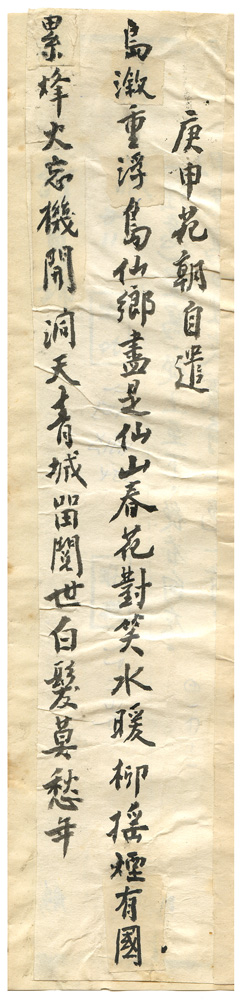 庚申花朝自遣
島溆重浮島仙鄉盡是仙山春花對笑水暖柳搖煙有國
累烽火忘機開洞天青城留閱世白髮莫愁年